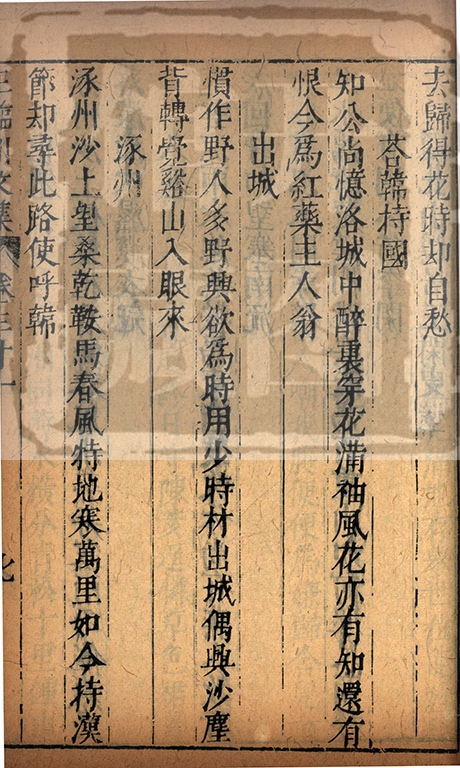 去歸得花時却自愁
荅韓持國
知公尚憶洛城中醉裏穿花滿袖風花亦有知還有
恨今爲紅藥主人翁
出城
慣作野人多野興欲爲時用少時材出城偶與沙塵
背轉覺谿山入眼來
涿州
涿州沙上望桑乾鞍馬春風特地寒萬里如今持漢
節却尋此路使呼韓
王臨川文集 卷三十一